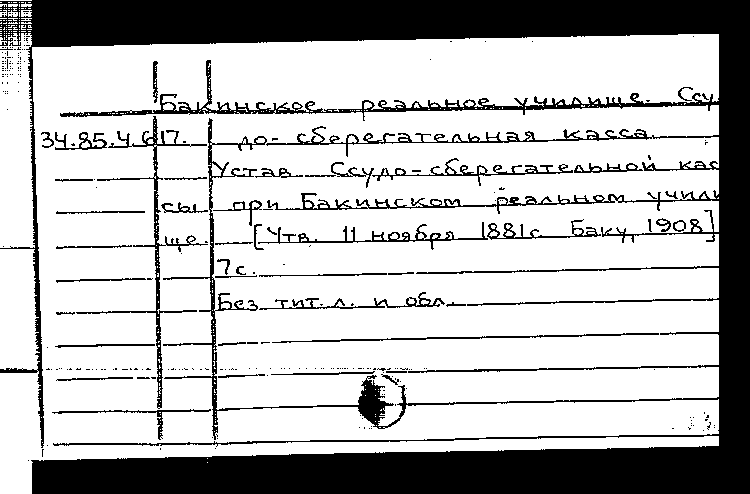 Бакинское реальное училище. Ссу
34.85.4.617. до-сберегательная касса.
Устав Ссудо-сберегательной кас
сы при Бакинском реальном учили
ще. [Утв. 11 ноября 1881г Баку, 1908]
7с.
Без тит. л. и обл.